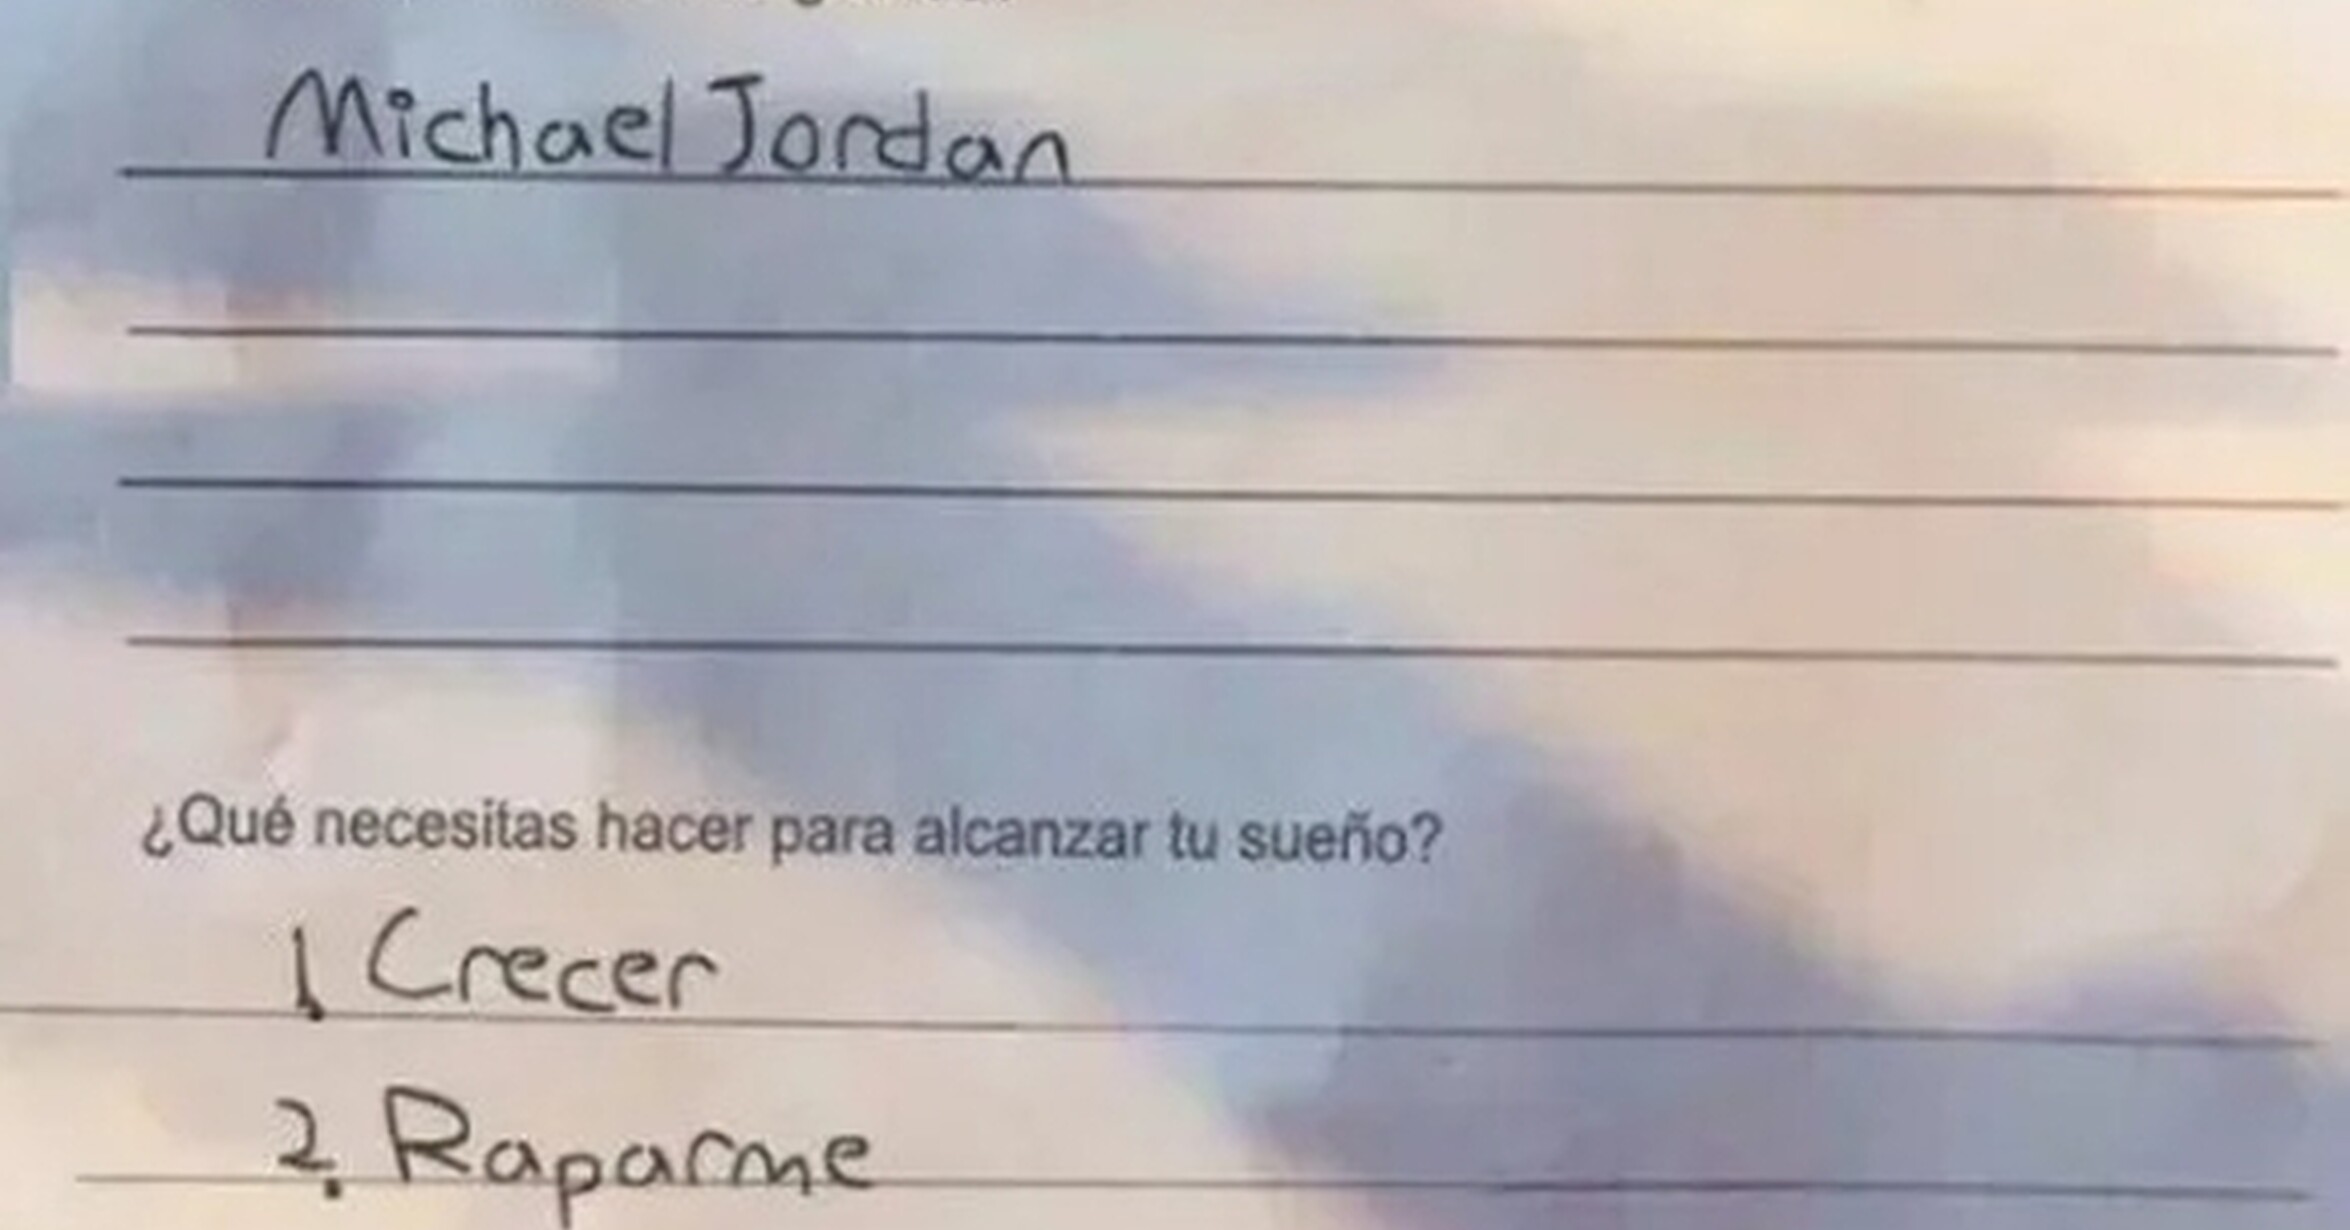 Michael Jordan
¿Qué necesitas hacer para alcanzar tu sueño?
1. Crecer
2. Raparme